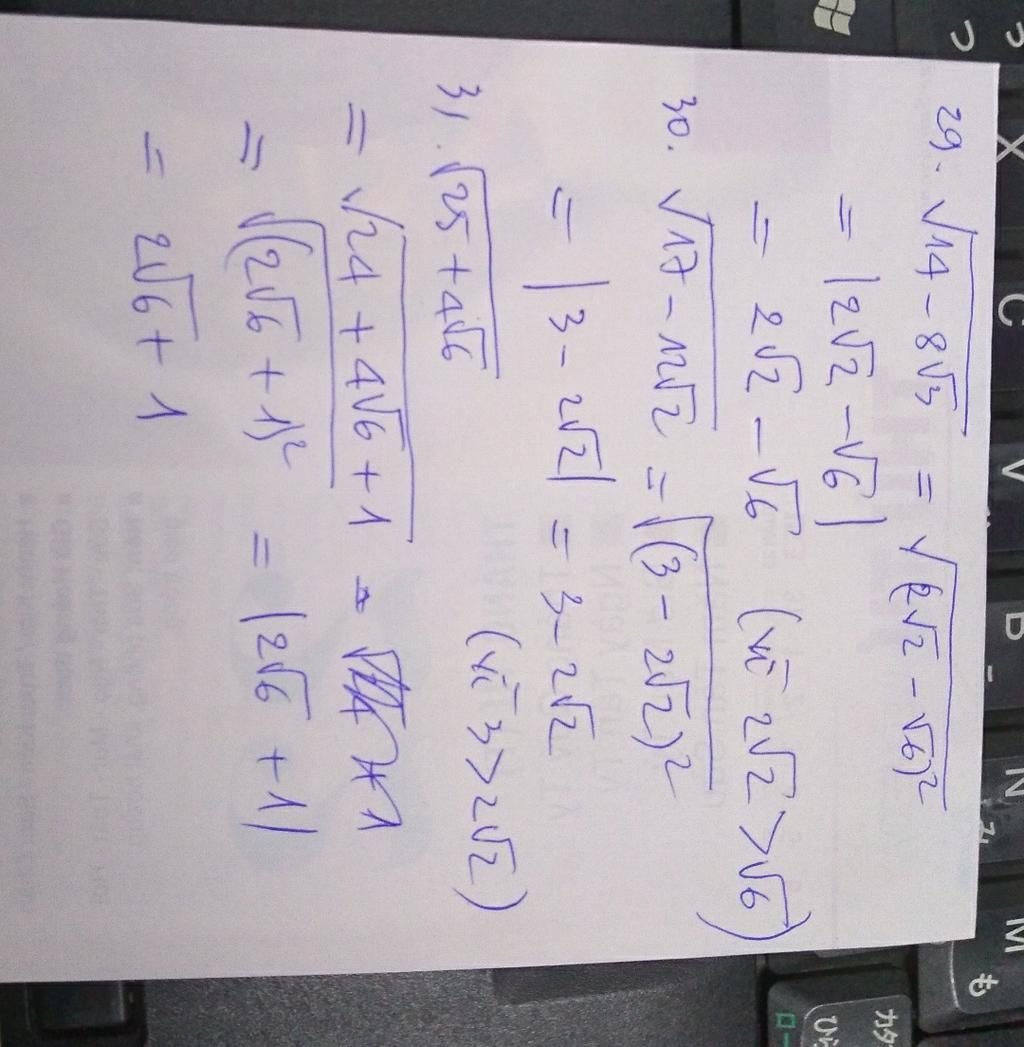 29. √(14 - 8√3) = √((2√2 - √6)²)
= |2√2 - √6|
= 2√2 - √6 (vì 2√2 > √6)
30. √(17 - 12√2) = √((3 - 2√2)²)
= |3 - 2√2| = 3 - 2√2
(vì 3 > 2√2)
31. √(25 + 4√6)
= √(24 + 4√6 + 1)
= √((2√6 + 1)²) = |2√6 + 1|
= 2√6 + 1
X C V B N M